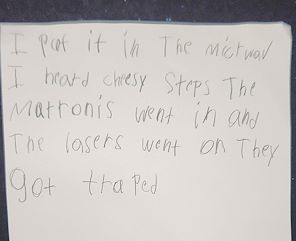 I pot it in The micrwav
I heard cheesy Steps The
Matronis went in and
The lasers went on They
got traped